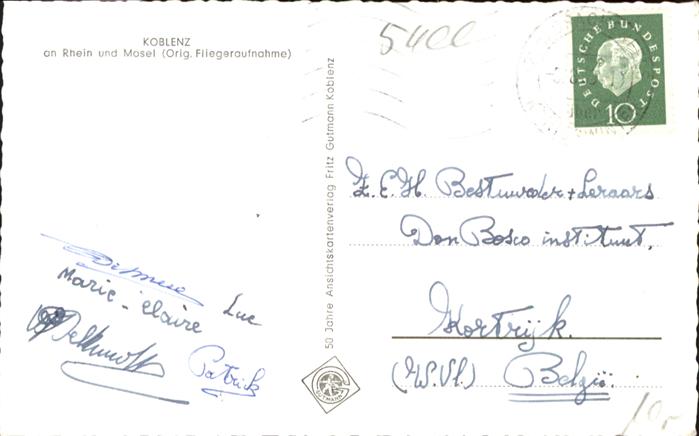 KOBLENZ
an Rhein und Mosel (Orig. Fliegeraufnahme)
5400
DEUTSCHE BUNDESPOST
10
50 Jahre Ansichtskartenverlag Fritz Gutmann Koblenz
GUTMANN
Z.E.H. Bestuurder + Leraars
Don Bosco instituut,
Kortrijk.
(W.Vl.) België.
Luc
Marie-Claire
Patrick